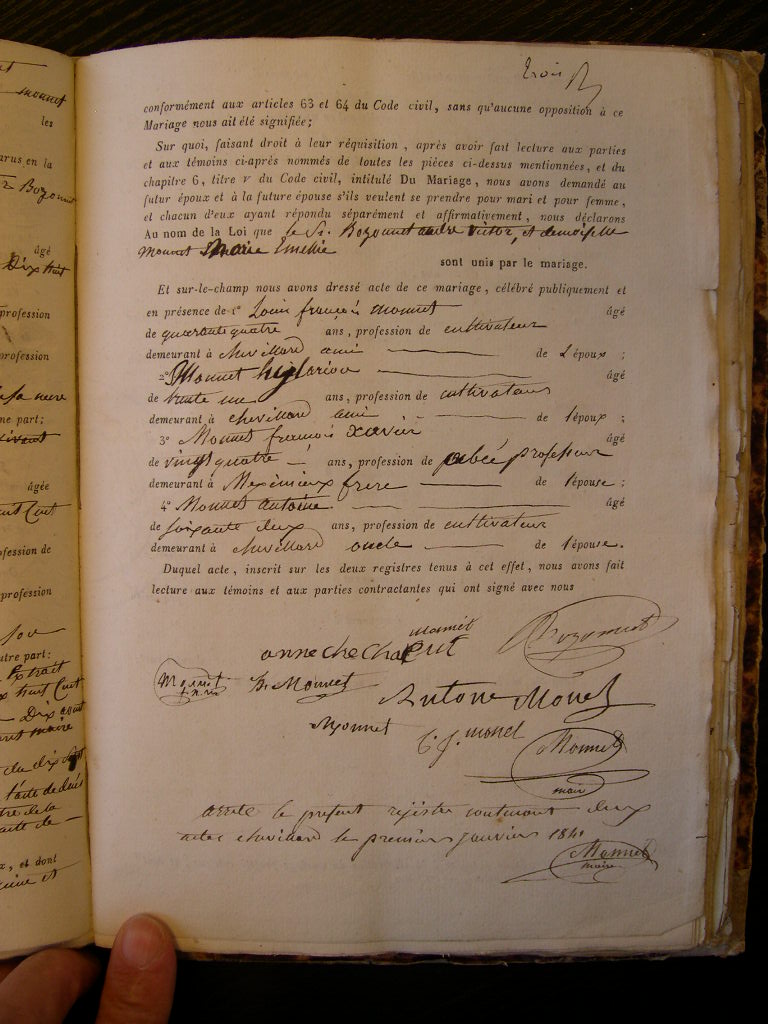 trois
conformément aux articles 63 et 64 du Code civil, sans qu'aucune opposition à ce
Mariage nous ait été signifiée;
Sur quoi, faisant droit à leur réquisition, après avoir fait lecture aux parties
et aux témoins ci-après nommés de toutes les pièces ci-dessus mentionnées, et du
chapitre 6, titre v du Code civil, intitulé Du Mariage, nous avons demandé au
futur époux et à la future épouse s'ils veulent se prendre pour mari et pour femme,
et chacun d'eux ayant répondu séparément et affirmativement, nous déclarons
Au nom de la Loi que le Sr. Bozonnet andre Victor, et demoiselle
Monnet Marie Emelie
sont unis par le mariage.
Et sur-le-champ nous avons dressé acte de ce mariage, célébré publiquement et
en présence de 1° Louis françois monnet âgé
de quarante quatre ans, profession de cultivateur
demeurant à chevillard ami de l'époux;
2° Monnet hylarion âgé
de trente une ans, profession de cultivateur
demeurant à chevillard ami de l'époux;
3° Monnet francois xavier âgé
de vingt quatre ans, profession de abcé professeur
demeurant à Meximieux frere de l'épouse;
4° Monnet antoine âgé
de soixante deux ans, profession de cultivateur
demeurant à chevillard oncle de l'épouse.
Duquel acte, inscrit sur les deux registres tenus à cet effet, nous avons fait
lecture aux témoins et aux parties contractantes qui ont signé avec nous
monnet
anne che Bozonnet
Monnet h. Monnet
Antone Monet
Monnet C. f. monet Monnet
maire
arrete le present rejistre contenant deux
actes chevillard le premier janvier 1841
Monnet
maire